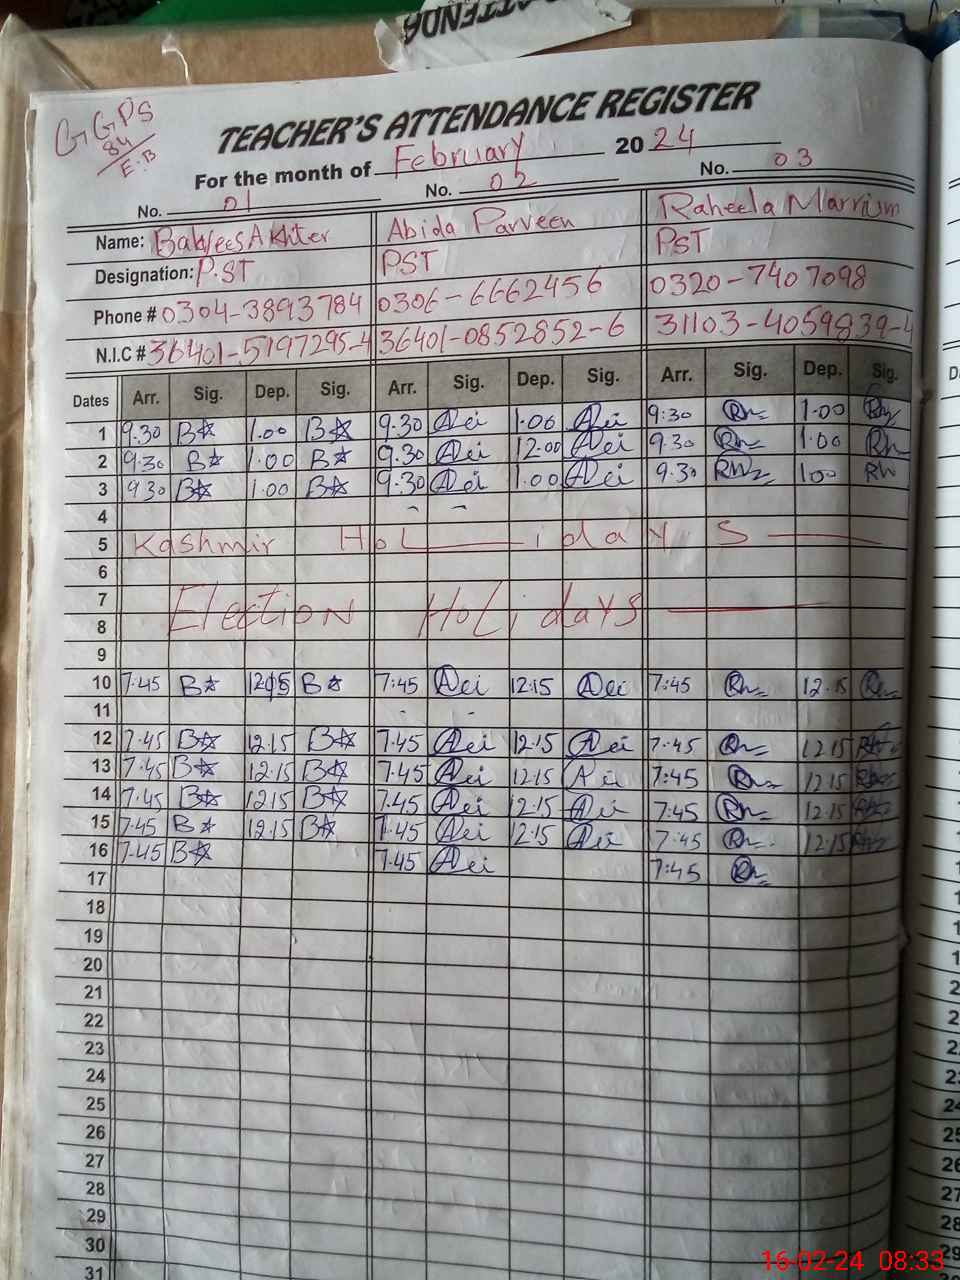 ATTENDA
GGPS
84
E.B
TEACHER'S ATTENDANCE REGISTER
For the month of February 2024
No. 01 No. 02 No. 03
Name: Akhter Abida Parveen Raheela
Designation: P.ST PST PST
Phone # 0304-3893784 0306-6662456 0320-7407098
N.I.C # 36401-5197295-4 36401-0852852-6 31103-4059839-4
Dates Arr. Sig. Dep. Sig. Arr. Sig. Dep. Sig. Arr. Sig. Dep. Sig.
1 9.30 1.00 9.30 1.00 9:30 1.00
2 9.30 1.00 9.30 12.00 9.30 1.00
3 9.30 1.00 9.30 1.00 9.30 1.00
4
5 Kashmir HoLidayS
6
7 Election HoLidays
8
9
10 7.45 7:45 12:15 7:45 12.15
11
12 7.45 12.15 7.45 12.15 7.45 12.15
13 7.45 12.15 7.45 12.15 7:45 12.15
14 7.45 12.15 7.45 12.15 7:45 12.15
15 7.45 12.15 7.45 12.15 7.45 12.15
16 7.45 7.45 7:45
17
18
19
20
21
22
23
24
25
26
27
28
29
30
31
16-02-24 08:33